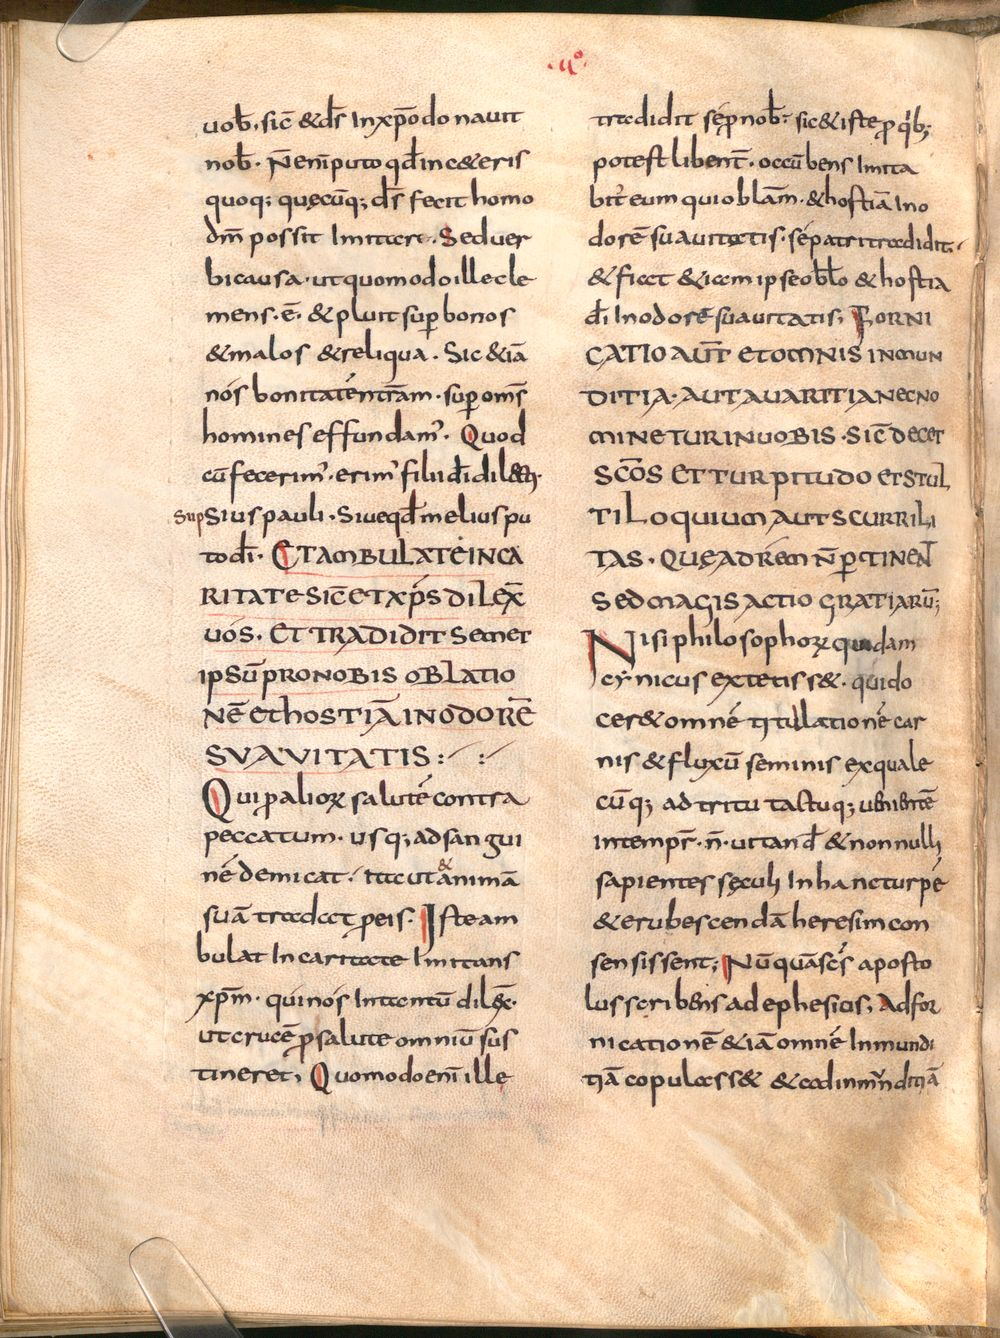 ·q°·
uob̅· sic̅ & d̅s Inxp̅o donauit
nob̅· N̅ eni̅ puto qd̅ inc&eris
quoq; quęcu̅q; d̅s fecit homo
do̅m possit Imittere· Sed uer
bi causa· ut quomodo ille cle
mens· e̅· & pluit sup̅ bonos
& malos & reliqua· Sic & ia̅
nós bonitate̅ n̅ram· sup̅ om̅s
homines effundam᾽· Quod
cu̅ fecerim᾽· erim᾽ filii d̅i dil&i·
Sup Sius pauli· Siue qd̅ melius pu
to d̅i· ET AMBULATE IN CA
RITATE SIC̅ ET XP̅S DILEX̅
UOS· ET TRADIDIT SEMET
IPSU̅ PRO NOBIS OBLATIO
NE̅ ET HOSTIA̅ IN ODORE̅
SUAUITATIS:
Qui p̱ aliorꝝ salute̅ contra
peccatum· usq; ad sangui
ne̅ demicat· ita ut & anima̅
sua̅ tradat p̱ eis· Iste am
bulat In caritate Imitans
xp̅m· qui nós Intentu̅ dilex̅·
ut cruce̅ p̱ salute omniu̅ sus
tineret; Quomodo eni̅ ille
tradidit se̅ p̱ nob̅· sic & iste p̱ q̇b;
potest libent̅· occu̅bens Imita
bit᾽ eum qui obla̅m· & hostia̅ Ino
dore̅ suauitatis· se̅ patri tradidit·
& fiet & iam ipse obl̅o & hostia
d̅i In odore̅ suauitatis; FORNI
CATIO AUT̅ ET OMNIS INMUN
DITIA· AUT AUARITIA NEC NO
MINETUR IN UOBIS· SIC̅ DECET
SC̅OS ET TURPITUDO ET STUL
TILOQUIUM AUT SCURRILI
TAS· QUĘ AD RE̅M N̅ P̱TINENT
SED MAGIS ACTIO GRATIARU̅;
Nisi philosophorꝝ quidam
cynicus extetiss&· qui do
cer& omne̅ titulatione̅ car
nis & fluxu̅ seminis ex quale
cu̅q; ad tritu tactuq; ueniente̅
in tempr̅· n̅· uitand̅ & non nulli
sapientes sęculi In hanc turpe̅
& erubescenda̅ heresim con
sensissent; Nu̅qua̅ sc̅s aposto
lus scribens ad ephesios; Ad for
nicatione̅ & ia̅ omne̅ Inmundi
tia̅ copulass& & ad inmunditia̅